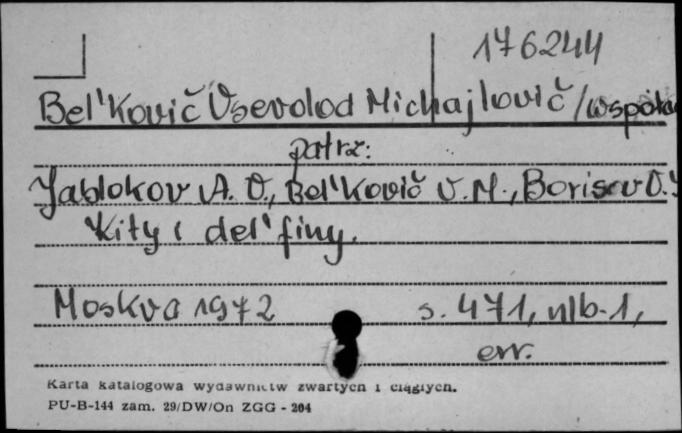 176244
Bel'Kovič Vsevolod Michajlovič /współa
patrz:
Jablokov A. V., Bel'Kovič V.M., Borisov V.
Kity i del'finy.
Moskva 1972 s. 471, nlb-1,
err.
Karta katalogowa wydawnictw zwartych i ciągłych.
PU-B-144 zam. 29/DW/On ZGG - 204